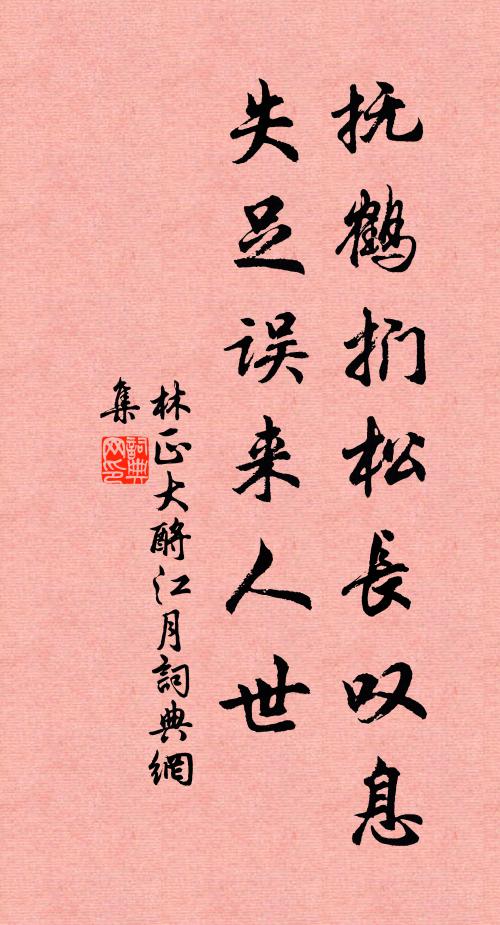 抚鹤扪松長叹息
失足误来人世
林正大酹江月詞典網
集
詞典网印